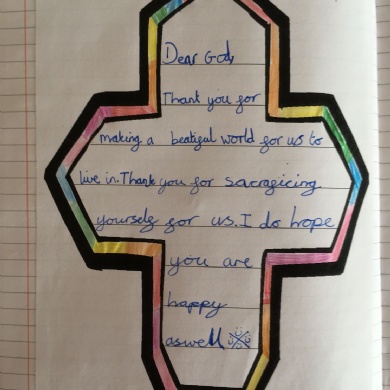 Dear God,
Thank you for
making a beatiful world for us to
live in. Thank you for sacragicing
yourself for us. I do hope
you are
happy
aswell